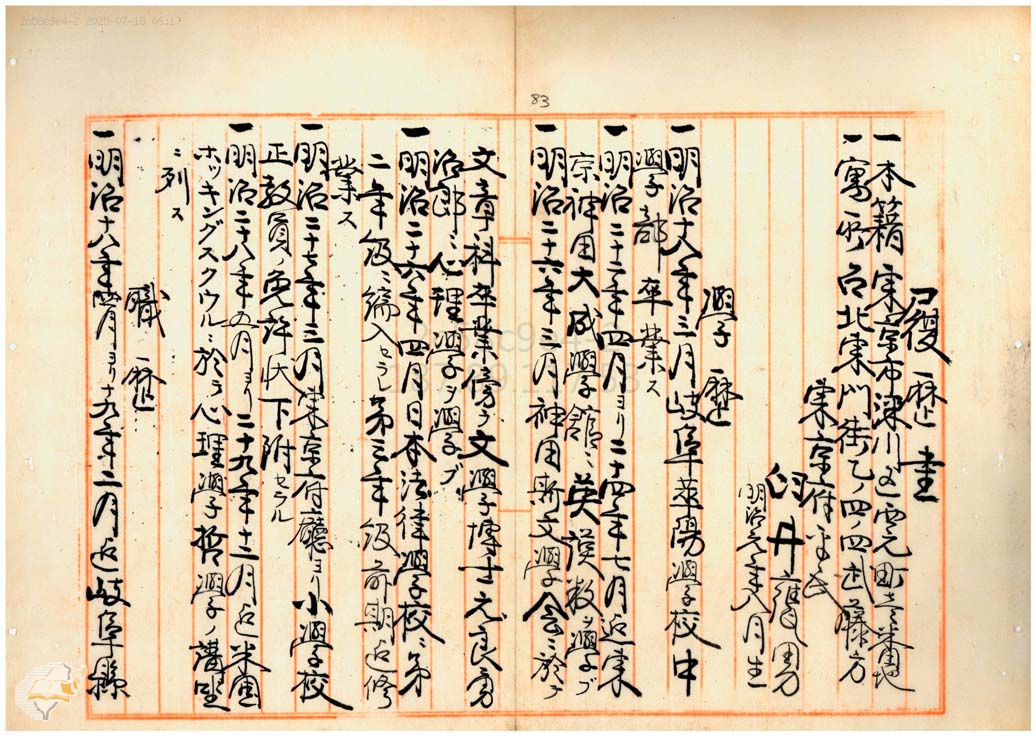 2c58c9e4-2 2025-07-18 06:17
83
履歴書
一本籍 東京市深川区霊 町 番地
一寓所台北東門街乙ノ四ノ四武藤方
東京府平民
臼井 男
明治元年八月生
學歴
一明治十八年三月岐阜華陽學校中
學部卒業ス
一明治二十二年四月ヨリ二十四年七月迄東
京神田大成學館ニ英漢数ヲ學ブ
一明治二十六年三月神田斯文學会ニ於テ
文章科卒業傍ラ文學博士元良勇
治郎ニ心理學ヲ學ブ
一明治二十六年四月日本法律學校ニ第
二年級ニ編入セラレ第三年級前期迄修
業ス
一明治二十七年三月東京府廳ヨリ小學校
正教員ノ免許状下附セラル
一明治二十八年五月ヨリ二十九年十二月迄米國
ホッキングスクウルニ於テ心理學哲學ノ講
ニ列ス
職歴
一明治十八年 月ヨリ十九年三月迄岐阜縣